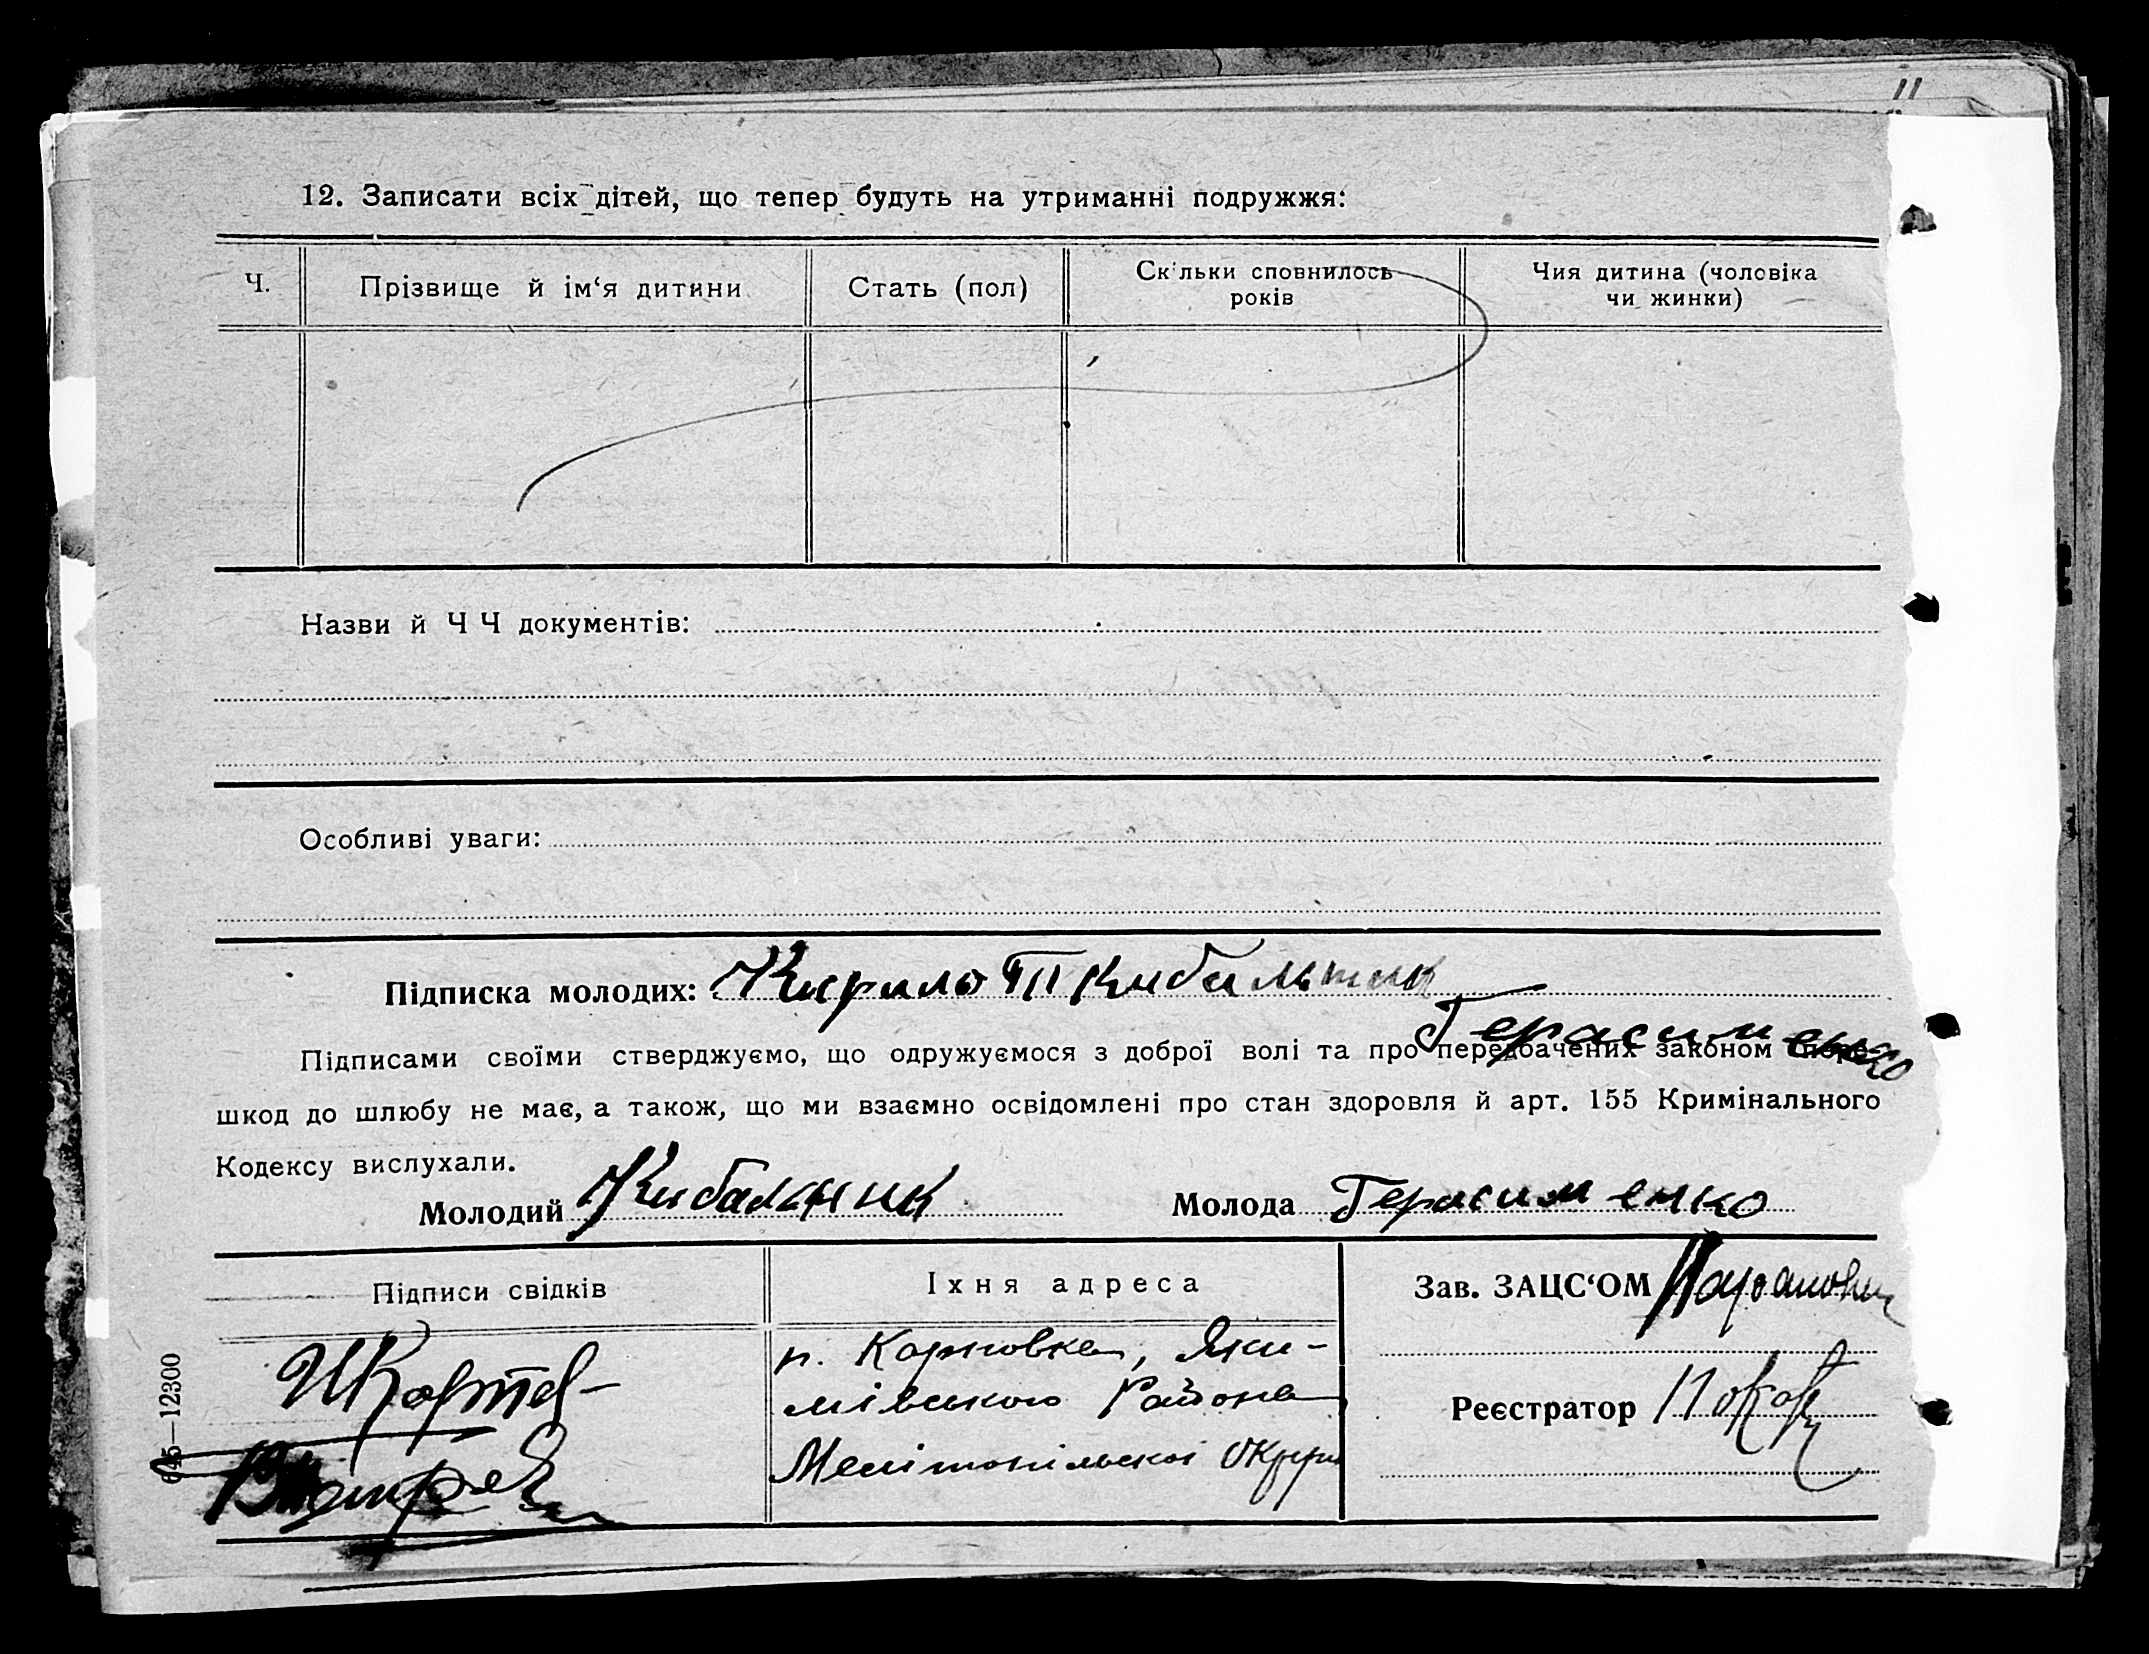 11
12. Записати всіх дітей, що тепер будуть на утриманні подружжя:
Ч.
Прізвище й ім‘я дитини
Стать (пол)
Скільки сповнилось
років
Чия дитина (чоловіка
чи жинки)
Назви й Ч Ч документів:
Особливі уваги:
Підписка молодих: Кирило П Кибальник
Герасименко
Підписами своїми стверджуємо, що одружуємося з доброї волі та про передбачених законом
шкод до шлюбу не має, а також, що ми взаємно освідомлені про стан здоровля й арт. 155 Кримінального
Кодексу вислухали.
Молодий Кибальник Молода Герасименко
Підписи свідків
Їхня адреса
п. Карповка, Яки-
мівського Района
Мелітопільскої Округи
Зав. ЗАЦС‘ОМ
Реєстратор
645—12300